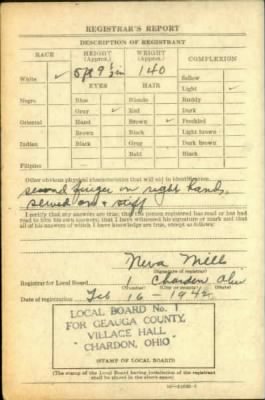 REGISTRAR'S REPORT
DESCRIPTION OF REGISTRANT
RACE HEIGHT (Approx.) WEIGHT (Approx.) COMPLEXION
White ✓ 5 ft 9 ½ in 140 Sallow
EYES HAIR Light ✓
Negro Blue Blonde Ruddy
Gray ✓ Red Dark
Oriental Hazel Brown ✓ Freckled
Brown Black Light brown
Indian Black Gray Dark brown
Bald Black
Filipino
Other obvious physical characteristics that will aid in identification
second finger on right hand,
served on & stiff
I certify that my answers are true; that the person registered has read or has had
read to him his own answers; that I have witnessed his signature or mark and
that all of his answers of which I have knowledge are true, except as follows:
Neva Mells
(Signature of registrar)
Registrar for Local Board 1 Chardon Ohio
(Number) (City or county) (State)
Date of registration Feb 16 - 1942
LOCAL BOARD No. 1
FOR GEAUGA COUNTY,
VILLAGE HALL
CHARDON, OHIO
(STAMP OF LOCAL BOARD)
(The stamp of the Local Board having jurisdiction of the registrant
shall be placed in the above space)